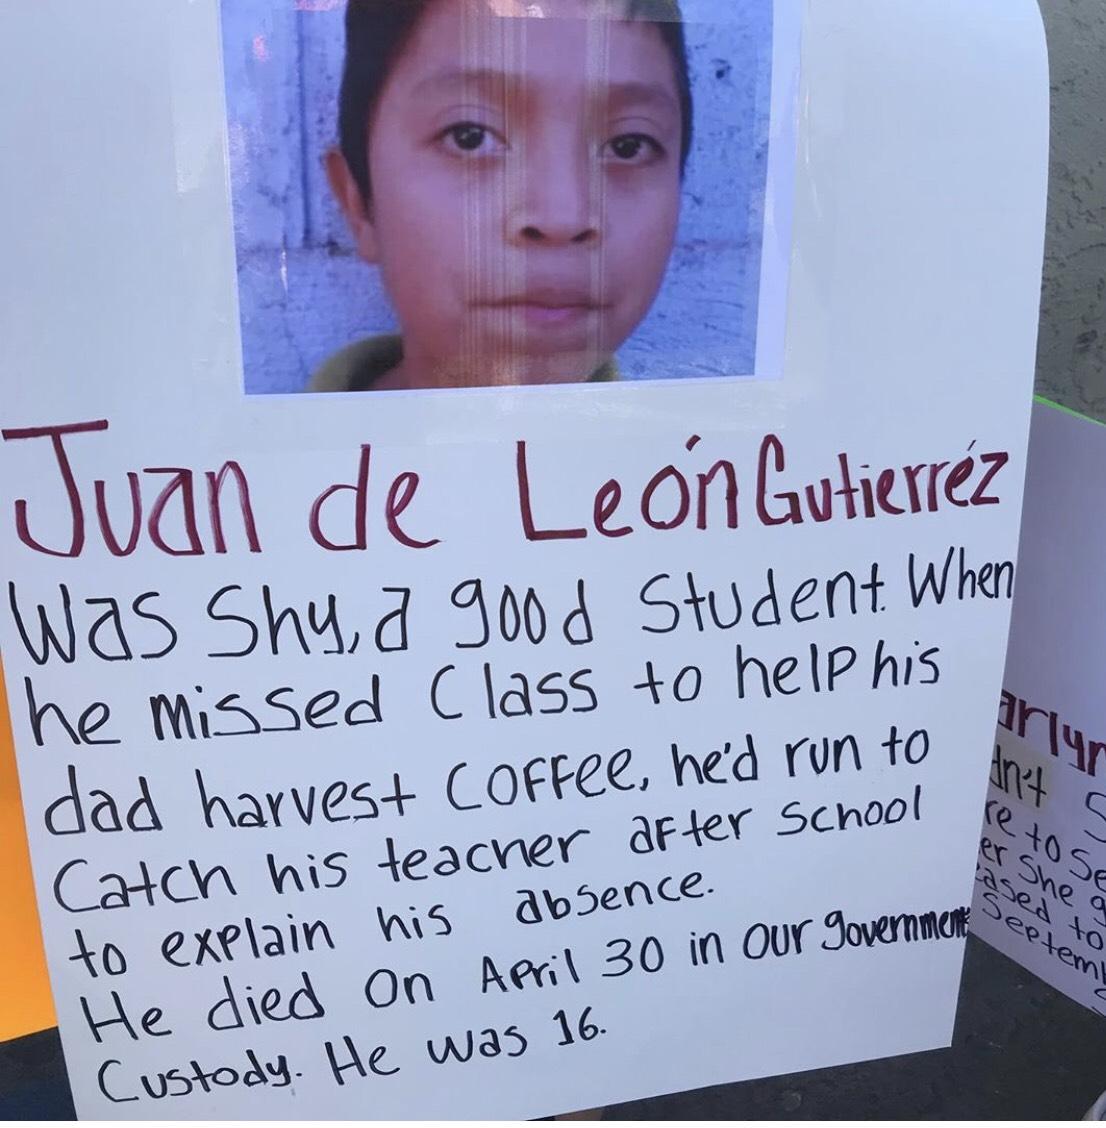 Juan de León Gutierréz
Was Shy, a good Student. When
he missed Class to help his
dad harvest Coffee, he'd run to
Catch his teacher after School
to explain his absence.
He died On April 30 in our government
Custody. He was 16.
arlyn
dn't
re to Se
er She g
eased to
Septemb